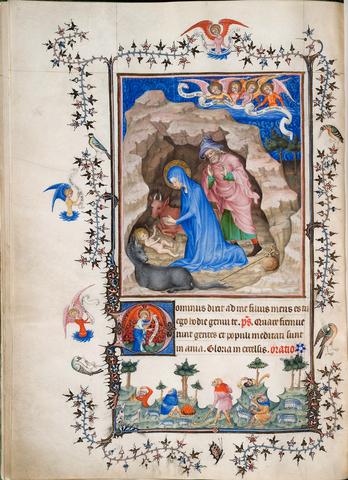 ominus dixit ad me filius meus es tu
ego hodie genui te. ps. Quare fremue
runt gentes et populi meditati sunt
in ania. Gloria in excelsis. oratio